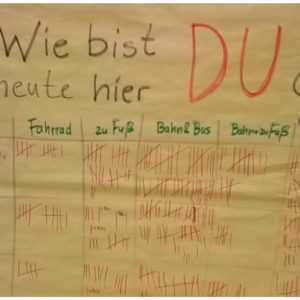 Wie bist
heute hier DU
Fahrrad zu Fuß Bahn&Bus Bahn+zuFuß